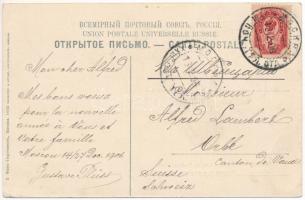 ВСЕМІРНЫЙ ПОЧТОВЫЙ СОЮЗЪ. РОССІЯ.
UNION POSTALE UNIVERSELLE. RUSSIE.
ОТКРЫТОЕ ПИСЬМО. — CARTE POSTALE
Mon cher Alfred
Mes bons voeux
pour la nouvelle
année à Vous et
votre famille
Moscou 14/27 Dec. 1906
Gustave
въ Швейцарію
Monsieur
Alfred Lambert
Orbe
Canton de Vaud
Suisse
Schweiz